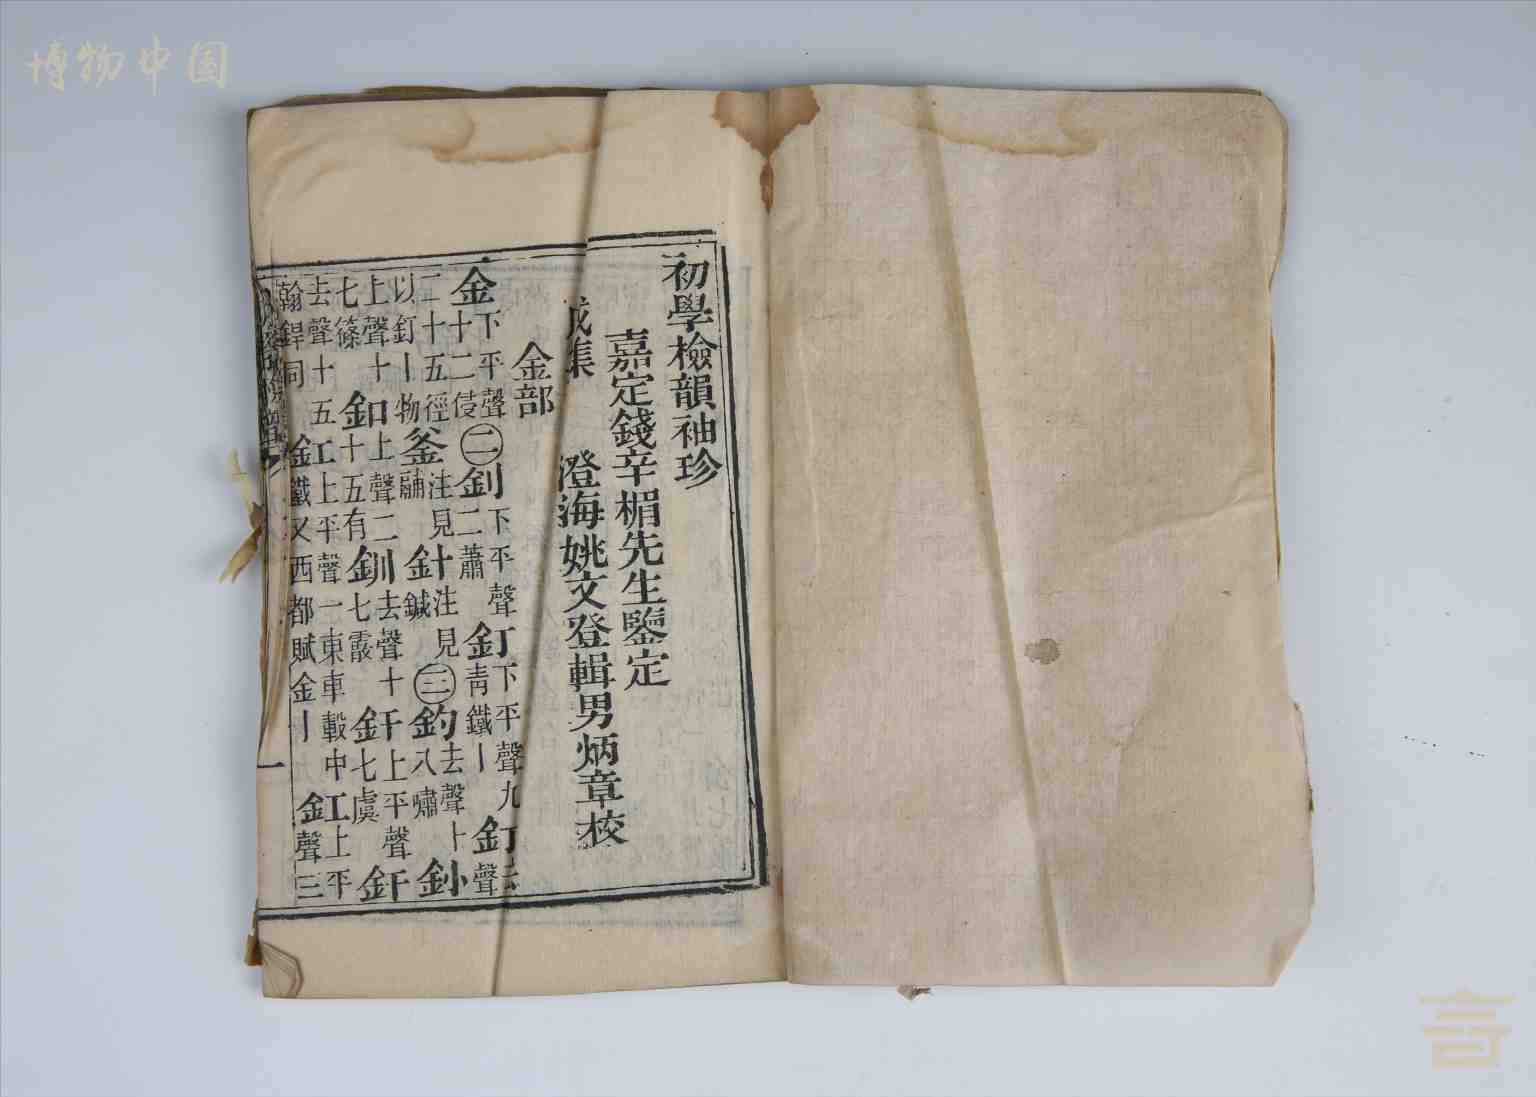 初學檢韻袖珍
嘉定錢辛楣先生鑒定
戌集 澄海姚文登輯男炳章校
金部
金下平聲十二侵㊁釗下平聲二蕭釘下平聲九青鐵丨釘去聲
二十五徑以釘丨物釜注見鬴針注見鍼㊂釣去聲十八嘯釥
上聲十七篠釦上聲二十五有釧去聲十七霰釪上平聲七虞釬
去聲十五翰銲同釭上平聲一東車轂中鐵又西都賦金丨釭上平聲三
一
博物中国